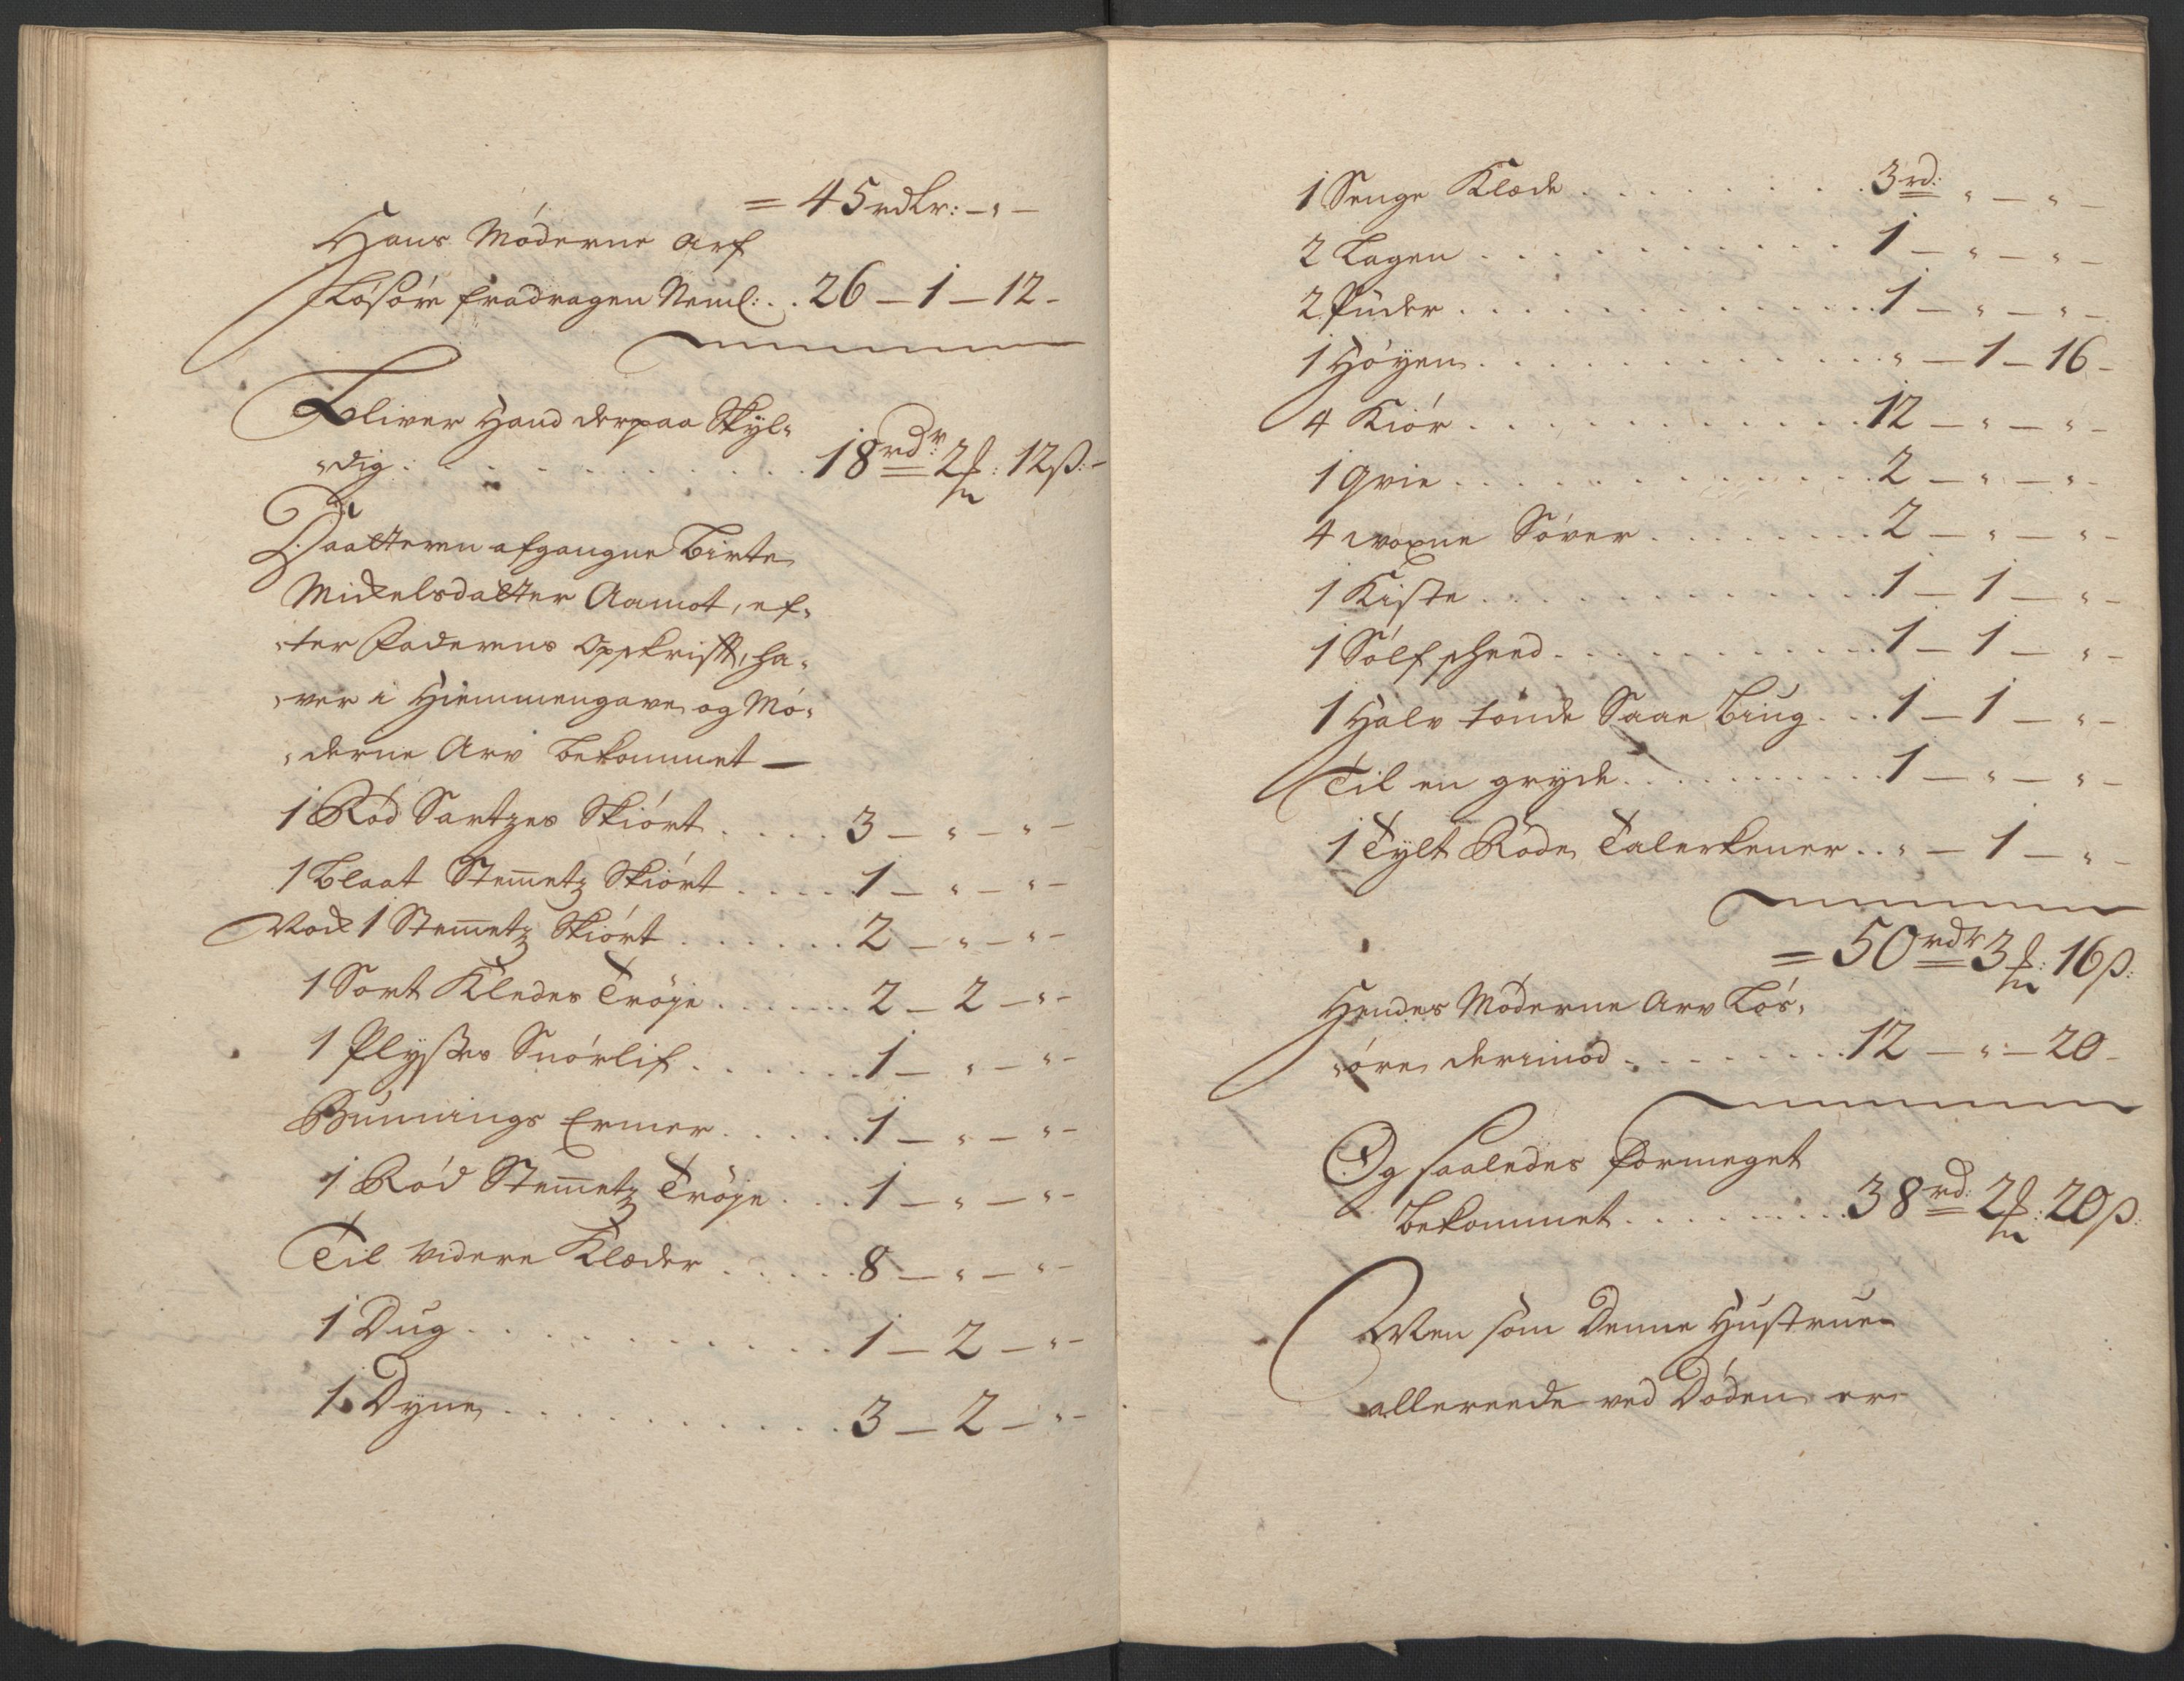 = 45 rdlr: – " –
Hans Möderne Arf
Lösöre fradragen Neml: . . 26 – 1 – 12 –
Bliver Hand derpaa Skyl-
dig . . . . . . 18 rdr: 2 f: 12 ß: –
Daatteren afgangne Birte
Mickelsdatter Aamot, ef-
ter Faderens Opskrifft, ha-
ver i Hiemmengave og Mö-
derne Arv bekommet –
1 Röd Sartzes Skiört . . . . 3 – " – " –
1 Blaat Stemetz Skiört . . . . 1 – " – " –
Nock 1 Stemetz Skiört . . . . . 2 – " – " –
1 Sort Kledes Tröje . . . . . 2 – 2 – " –
1 Plysses Snörlif . . . . . 1 – " – " –
Bunnings Ermer . . . . . 1 – " – " –
1 Röd Stemetz Tröje . . . 1 – " – " –
Til videre Klæder . . . . . 8 – " – " –
1 Dug . . . . . . . . . 1 – 2 – " –
1 Dyne . . . . . . . . . 3 – 2 – " –
1 Senge Klæde . . . . . . . 3 rd: " – " –
2 Lagen . . . . . . . . . 1 – " – " –
2 Puder . . . . . . . . . 1 – " – " –
1 Höyen . . . . . . . . . " – 1 – 16 –
4 Kiör . . . . . . . . . 12 – " – " –
1 Qvie . . . . . . . . . 2 – " – " –
4 voxne Söver . . . . . . . 2 – " – " –
1 Kiste . . . . . . . . . 1 – 1 – " –
1 Sölf skeed . . . . . . . . 1 – 1 – " –
1 Halv tönde Saae Biug . . . 1 – 1 – " –
Til en gryde . . . . . . . 1 – " – " –
1 Tylt Röde Talerkener . . " – 1 – " –
= 50 rdr 3 f: 16 ß:
Hendes Möderne Arv Lös-
öre derimod . . . . . . . 12 – " – 20 –
Og saaledes formeget
bekommet . . . . . . . 38 rd: 2 f: 20 ß:
Men som Denne Hustrue
allereede ved Döden er